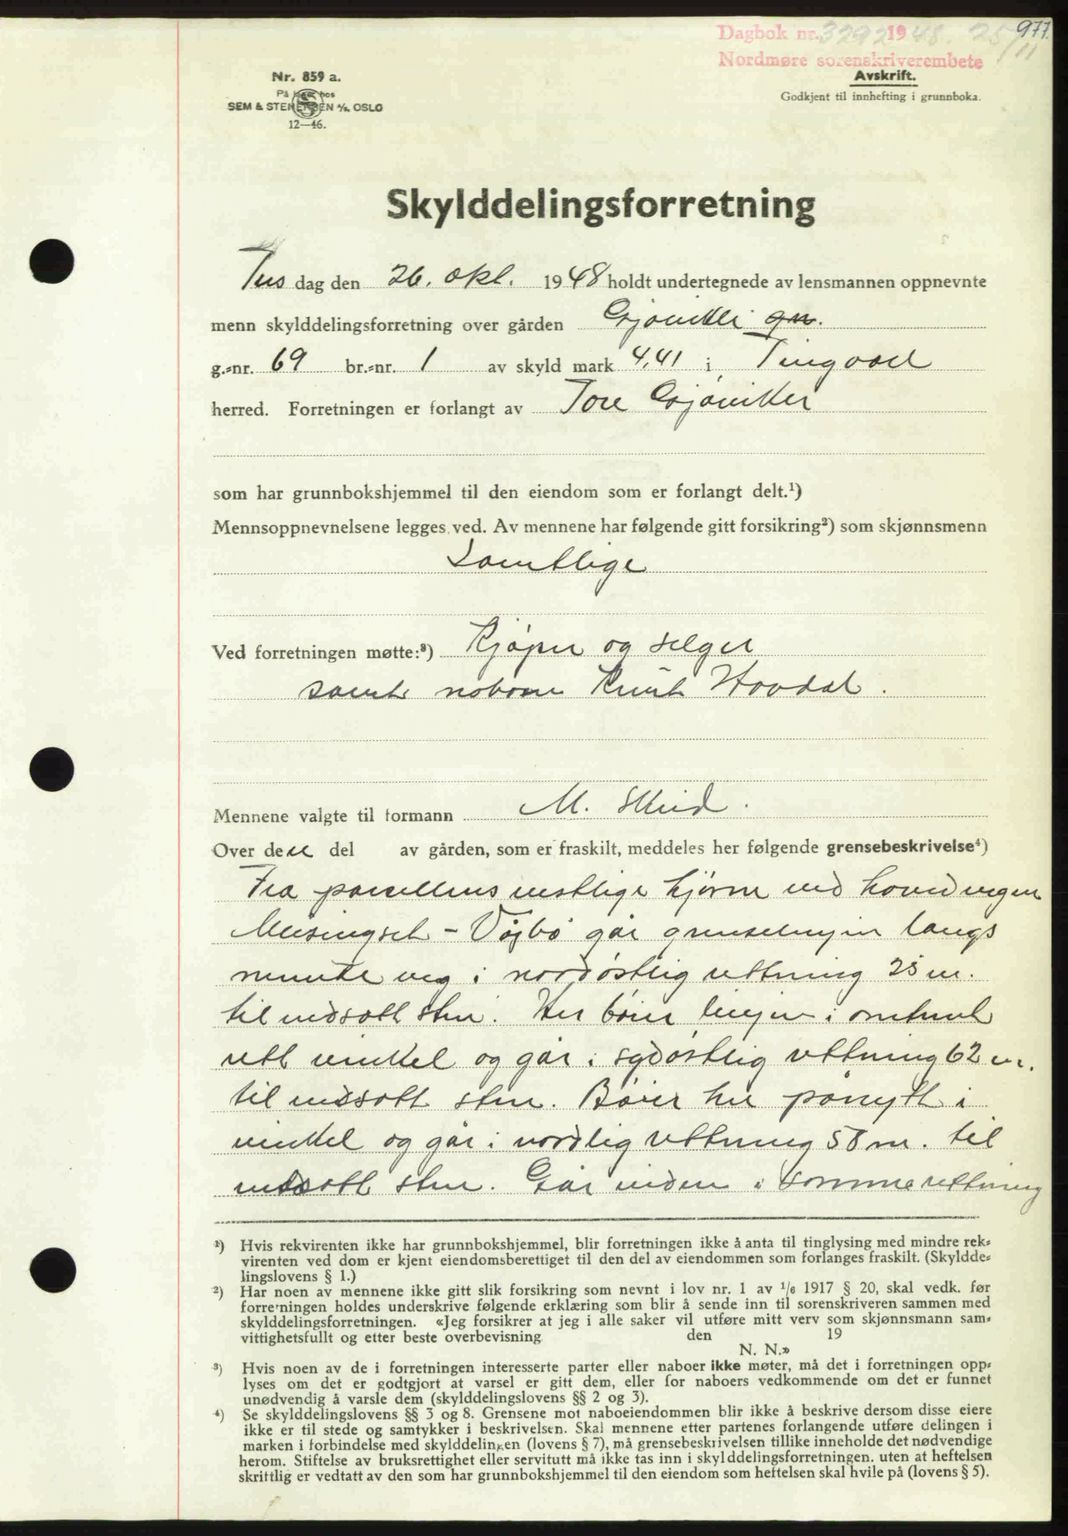 977
Dagbok nr. 3292 1948. 25/11
Nordmøre sorenskriverembete
Avskrift.
Godkjent til innhefting i grunnboka.
Nr. 859 a.
På lager hos
SEM & STENERSEN A/S, OSLO
12—46.
Skylddelingsforretning
Tirs dag den 26. okt. 1948 holdt undertegnede av lensmannen oppnevnte
menn skylddelingsforretning over gården Gjøvikli
g.-nr. 69 br.-nr. 1 av skyld mark 4,41 i Tingvoll
herred. Forretningen er forlangt av Tore Gjøvikli
som har grunnbokshjemmel til den eiendom som er forlangt delt.¹)
Mennsoppnevnelsene legges ved. Av mennene har følgende gitt forsikring²) som skjønnsmenn
Samtlige
Ved forretningen møtte:³) Kjøper og selger
samt naboen Knut Hovdal.
Mennene valgte til formann M.
Over denne del av gården, som er fraskilt, meddeles her følgende grensebeskrivelse⁴)
Fra parsellens vestlige hjørne ved hovedvegen
Meisingset - Vågbø går grenselinjen langs
nevnte veg i nordøstlig retning 25 m.
til nedsatt sten. Her bøier linjen i omtrent
rett vinkel og går i sydøstlig retning 62 m.
til nedsatt sten. Bøier her pånytt i
vinkel og går i nordlig retning 58 m. til
nedsatt sten. Går videre i samme retning
¹) Hvis rekvirenten ikke har grunnbokshjemmel, blir forretningen ikke å anta til tinglysing med mindre rek-
virenten ved dom er kjent eiendomsberettiget til den del av eiendommen som forlanges fraskilt. (Skyldde-
lingslovens § 1.)
²) Har noen av mennene ikke gitt slik forsikring som nevnt i lov nr. 1 av 1/6 1917 § 20, skal vedk. før
forretningen holdes underskrive følgende erklæring som blir å sende inn til sorenskriveren sammen med
skylddelingsforretningen. «Jeg forsikrer at jeg i alle saker vil utføre mitt verv som skjønnsmann sam-
vittighetsfullt og etter beste overbevisning den 19
N. N.»
³) Hvis noen av de i forretningen interesserte parter eller naboer ikke møter, må det i forretningen opp-
lyses om det er godtgjort at varsel er gitt dem, eller for naboers vedkommende om det er funnet
unødvendig å varsle dem (skylddelingslovens §§ 2 og 3).
⁴) Se skylddelingslovens §§ 3 og 8. Grensene mot naboeiendommen blir ikke å beskrive dersom disse eiere
ikke er til stede og samtykker i beskrivelsen. Skal mennene etter partenes forlangende utføre delingen i
marken i forbindelse med skylddelingen (lovens § 7), må grensebeskrivelsen tillike inneholde det nødvendige
herom. Stiftelse av bruksrettighet eller servitutt må ikke tas inn i skylddelingsforretningen. uten at heftelsen
skriftlig er vedtatt av den som har grunnbokshjemmel til den eiendom som heftelsen skal hvile på (lovens § 5).